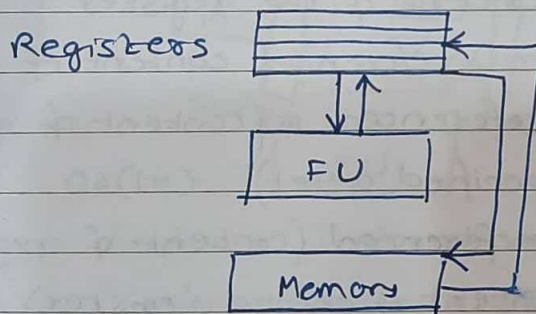 Registers
FU
Memory